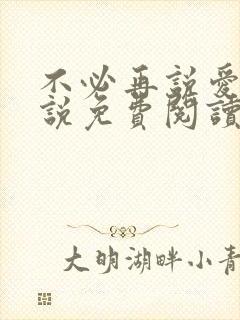 不必再説愛
説免費閱讀
大明湖畔小青